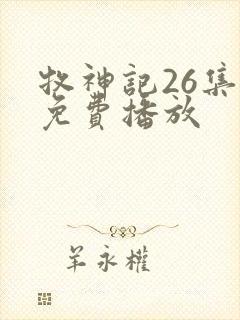 牧神記26集
免費播放
羊永權